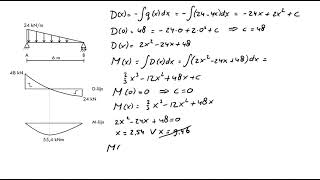 24 kN/m
A
B
6 m
48 kN
D-lijn
24 kN
M-lijn
D(x) = -∫q(x)dx = -∫(24-4x)dx = -24x+2x²+c
D(0) = 48 = -24·0+2·0²+c ⇒ c=48
D(x) = 2x²-24x+48
M(x) = ∫D(x)dx = ∫(2x²-24x+48)dx =
⅔x³-12x²+48x+c
M(0)=0 ⇒ c=0
M(x) = ⅔x³-12x²+48x
2x²-24x+48=0
x = 2.54 ∨ x = 9.46
M(